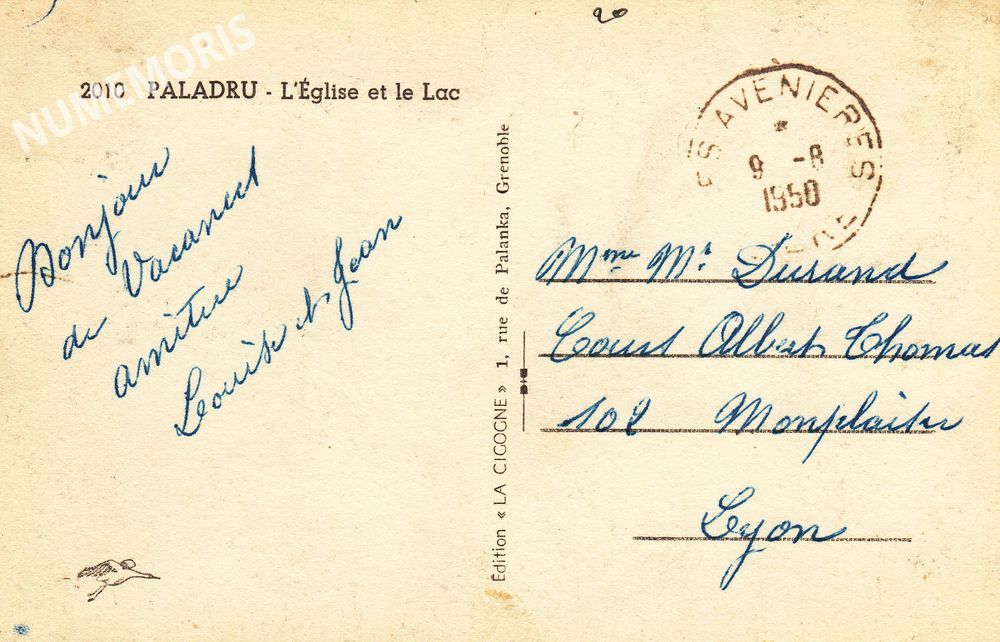 20
NUMEMORIS
2010 PALADRU - L'Église et le Lac
Bonjour
de Vacances
amitiée
Louise et Jean
Édition « LA CIGOGNE » 1, rue de Palanka, Grenoble
ES AVENIERES
9 -8
1950
ERE
Mme Mr Durand
Cours Albert Thomas
102 Monplaisir
Lyon